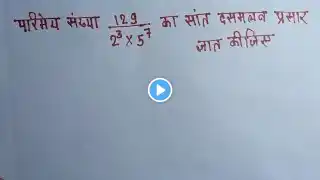 परिमेय संख्या 129 / 2³ × 5⁷ का सांत दसमलव प्रसार
ज्ञात कीजिए